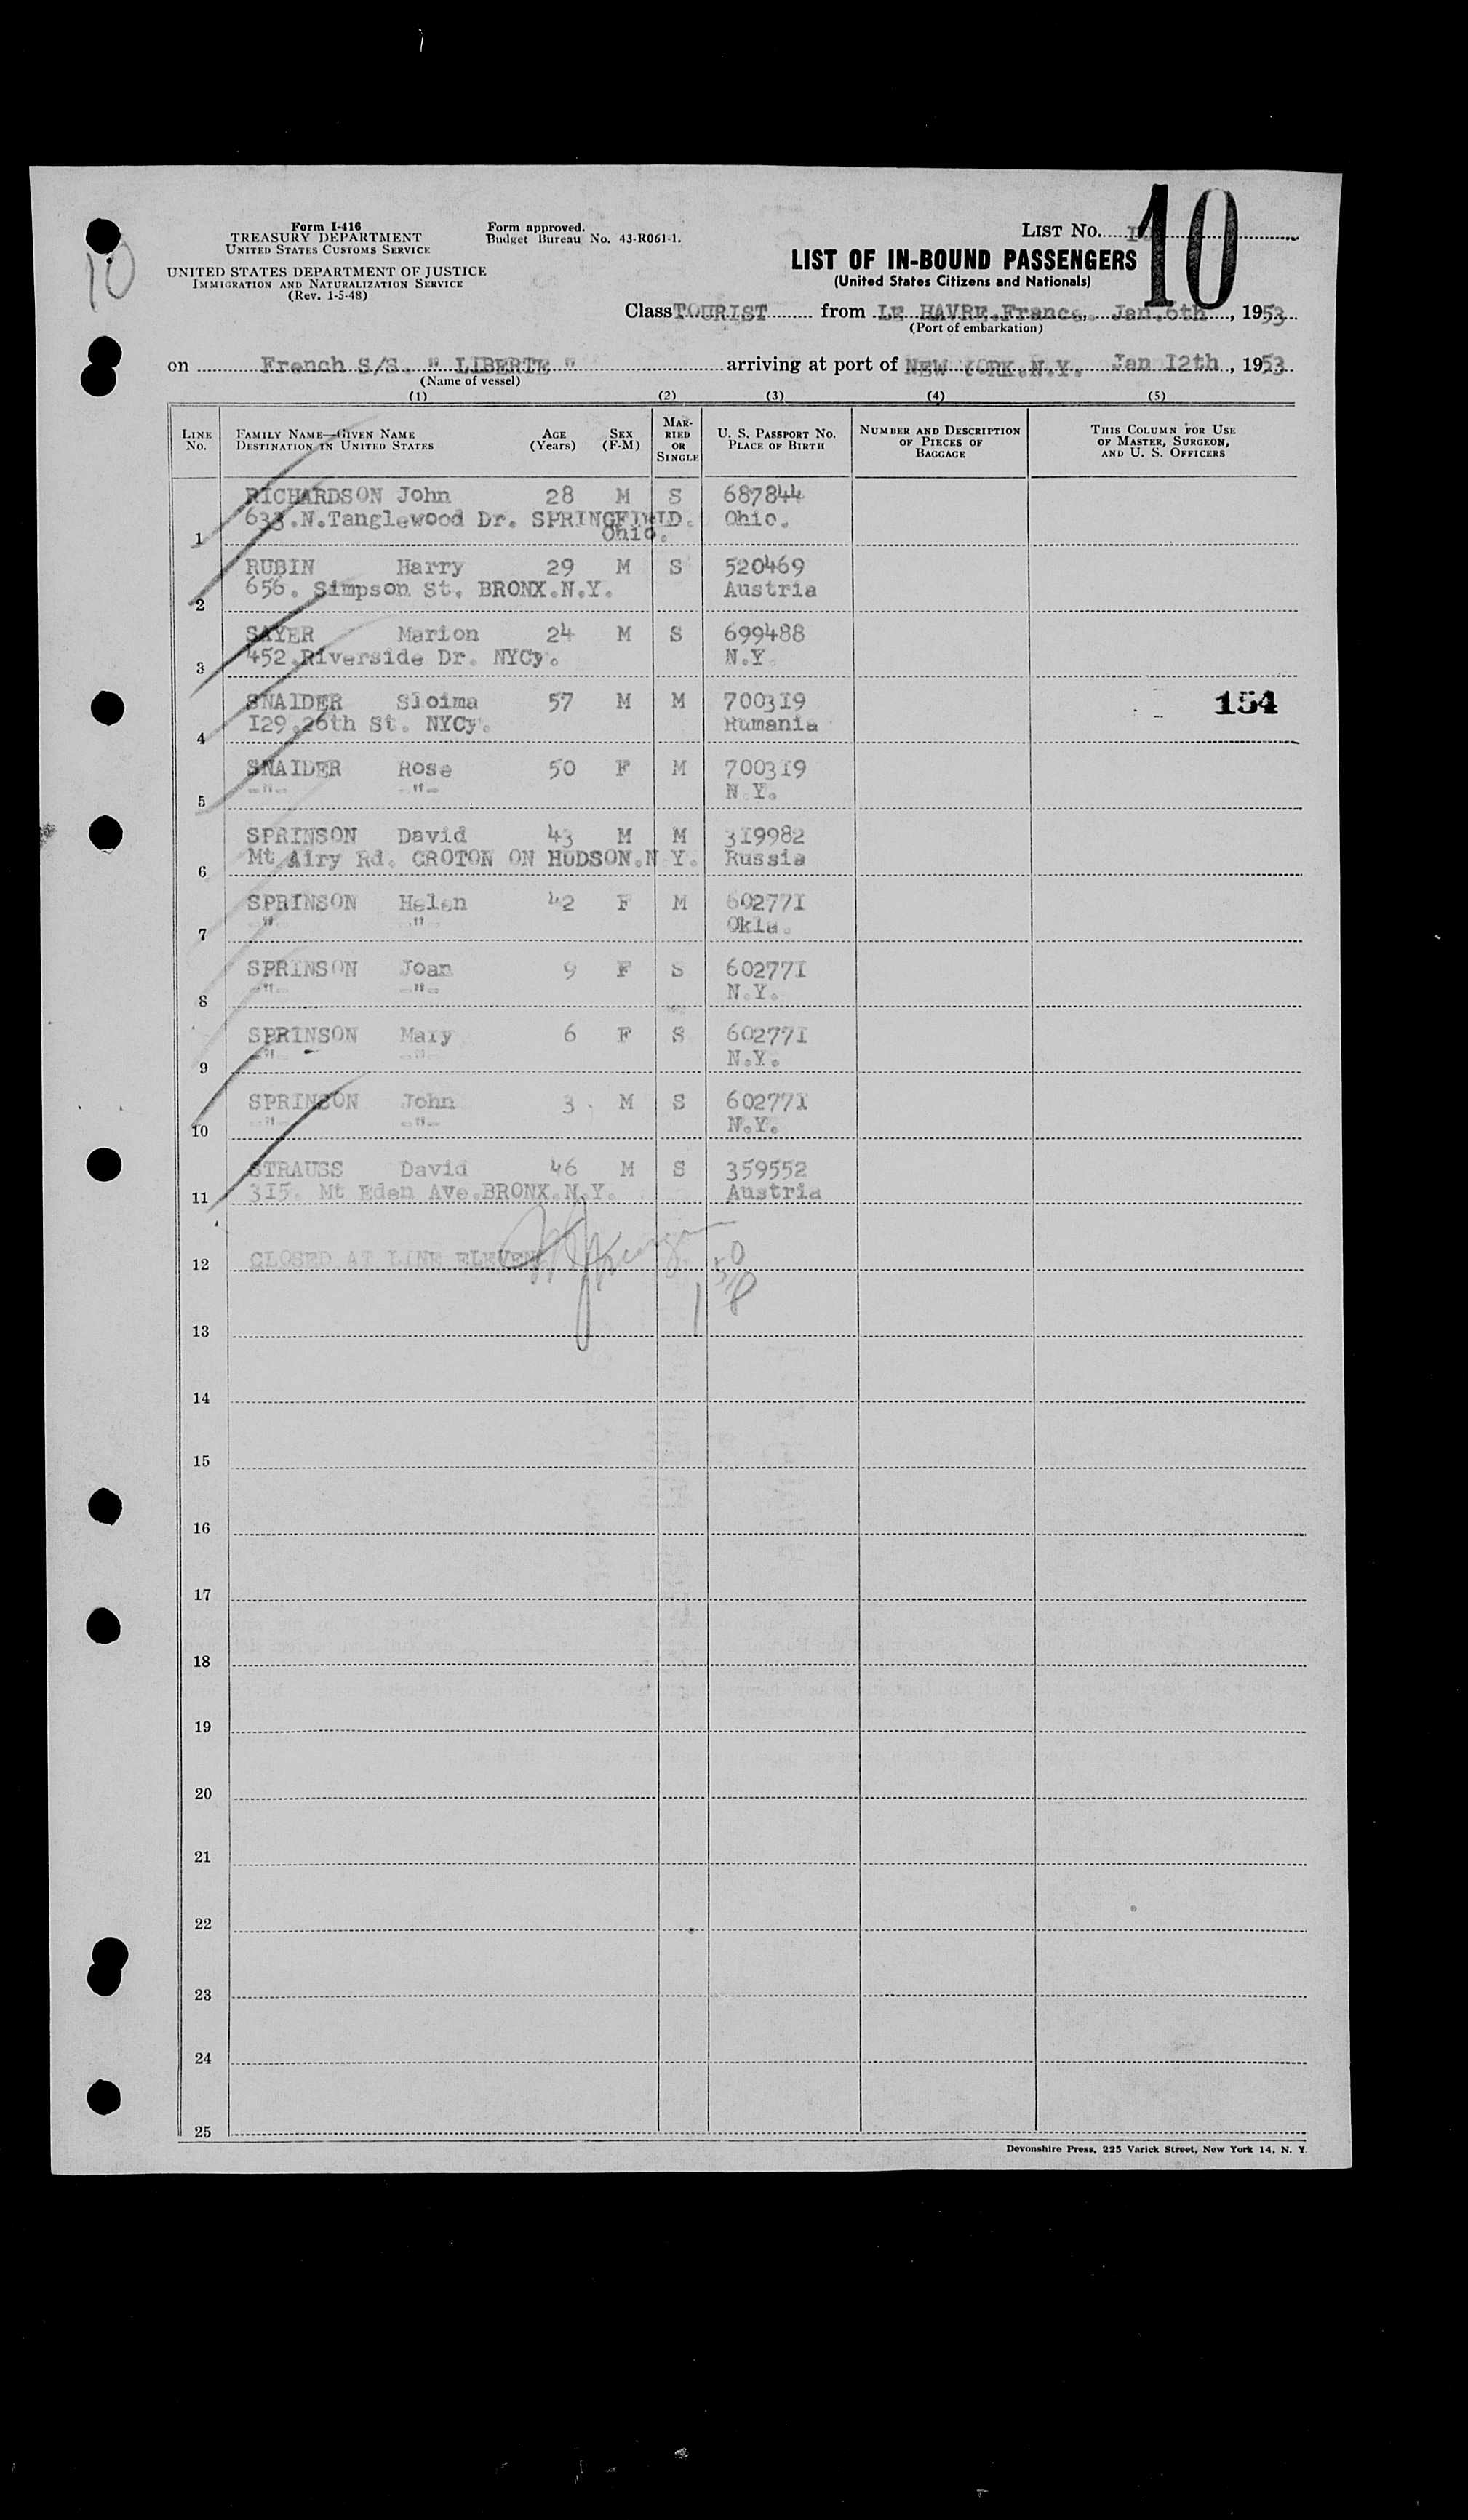 Form I-416
TREASURY DEPARTMENT
UNITED STATES CUSTOMS SERVICE
UNITED STATES DEPARTMENT OF JUSTICE
IMMIGRATION AND NATURALIZATION SERVICE
(Rev. 1-5-48)
Form approved.
Budget Bureau No. 43-R061-1.
LIST NO.
10
10
LIST OF IN-BOUND PASSENGERS
(United States Citizens and Nationals)
Class TOURIST from LE HAVRE.France. Jan.6th, 1953
(Port of embarkation)
on French S/S. " LIBERTE " arriving at port of NEW YORK.N.Y. Jan 12th, 1953
(Name of vessel)
(1) (2) (3) (4) (5)
LINE NO. FAMILY NAME—GIVEN NAME DESTINATION IN UNITED STATES AGE (Years) SEX (F-M) MARRIED OR SINGLE U. S. PASSPORT NO. PLACE OF BIRTH NUMBER AND DESCRIPTION OF PIECES OF BAGGAGE THIS COLUMN FOR USE OF MASTER, SURGEON, AND U. S. OFFICERS
RICHARDSON John 28 M S 687844
633.N.Tanglewood Dr. SPRINGFIELD. Ohio.
1 Ohio.
RUBIN Harry 29 M S 520469
656. Simpson St. BRONX.N.Y. Austria
2
SAYER Marion 24 M S 699488
452.Riverside Dr. NYCy. N.Y.
3
SNAIDER Sloima 57 M M 700319 154
129.26th St. NYCy. Rumania
4
SNAIDER Rose 50 F M 700319
-"- -"- N Y.
5
SPRINSON David 43 M M 319982
Mt Airy Rd. CROTON ON HUDSON.N Y. Russia
6
SPRINSON Helen 42 F M 602771
-"- -"- Okla.
7
SPRINSON Joan 9 F S 602771
-"- -"- N.Y.
8
SPRINSON Mary 6 F S 602771
-"- -"- N.Y.
9
SPRINSON John 3 M S 602771
-"- -"- N.Y.
10
STRAUSS David 46 M S 359552
315. Mt Eden Ave.BRONX.N.Y. Austria
11
CLOSED AT LINE ELEVEN
12
13
14
15
16
17
18
19
20
21
22
23
24
25
Devonshire Press, 225 Varick Street, New York 14, N. Y.